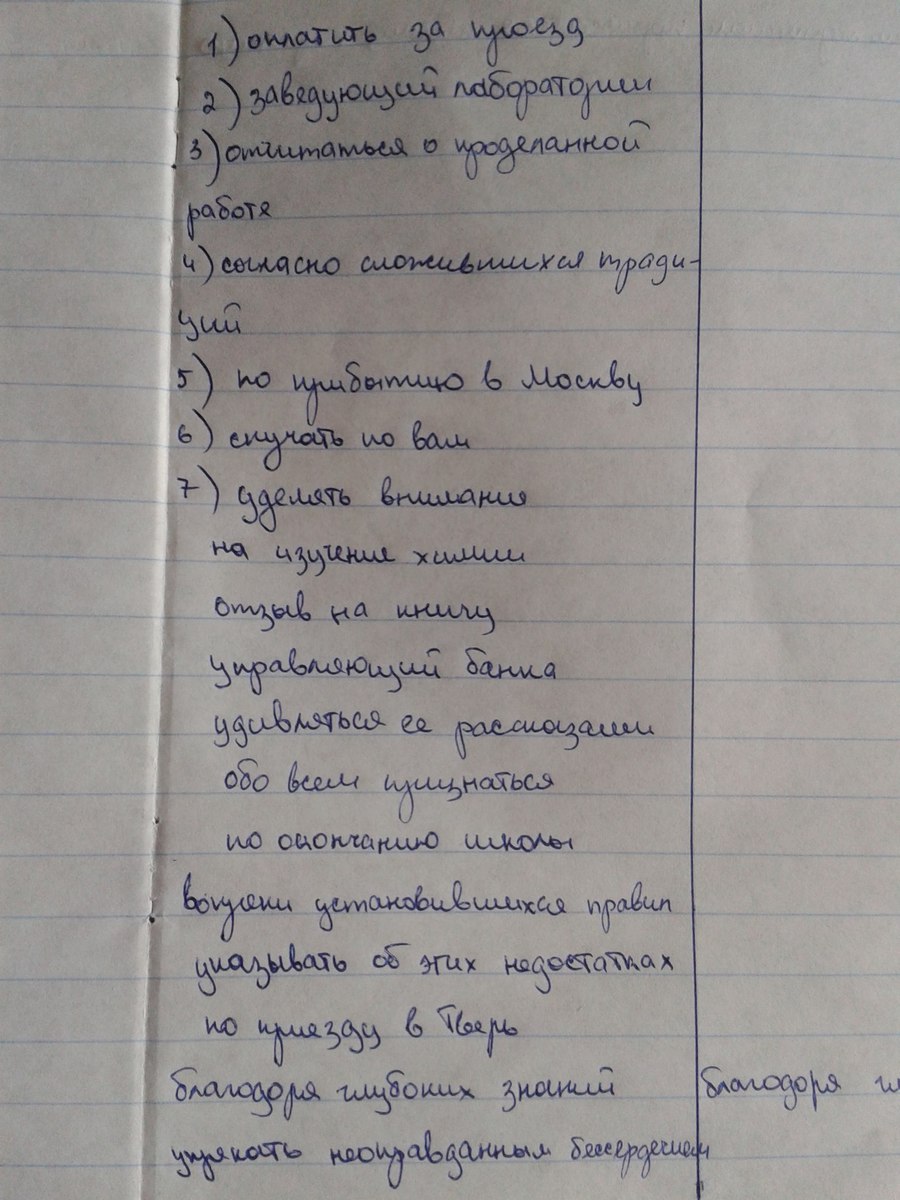 1) оплатить за проезд
2) заведующий лаборатории
3) отчитаться о проделанной
работе
4) согласно сложившихся тради-
ций
5) по прибытию в Москву
6) скучать по вам
7) уделять внимания
на изучение химии
отзыв на книгу
управляющий банка
удивляться ее рассказами
обо всем признаться
по окончанию школы
вопреки установившихся правил
указывать об этих недостатках
по приезду в Тверь
благодоря глубоких знаний благодоря гл
упрекать неоправданным бессердечием